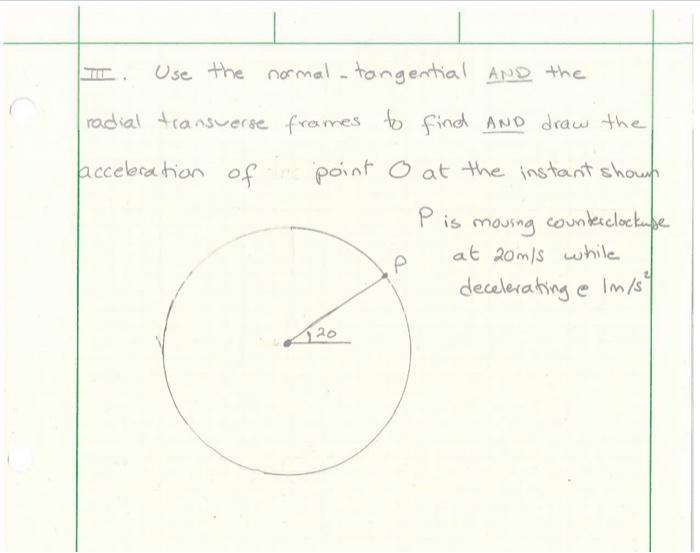 III. Use the normal-tangential AND the
radial transverse frames to find AND draw the
acceleration of point O at the instant shown
P is moving counterclockwise
at 20m/s while
decelerating @ 1m/s²
P
20